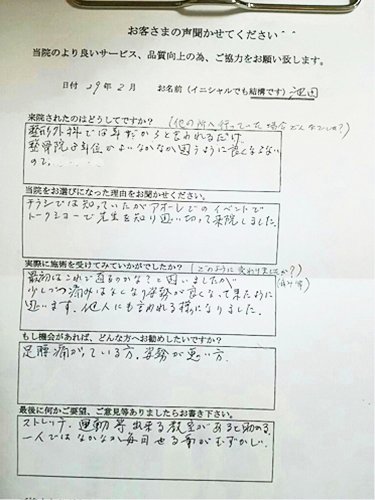 お客さまの声聞かせてください^ ^
当院のより良いサービス、品質向上の為、ご協力をお願い致します。
日付 29年2月 お名前(イニシャルでも結構です) 池田
来院されたのはどうしてですか? (他の所へ行っていた場合どんなでしたか?)
整形外科では年だからと言われるだけ。
整骨院は単位がよいなかなか思うように良くならない
ので、......
当院をお選びになった理由をお聞かせください。
チラシでは知っていたがアオーレでのイベントで
トークショーで先生を知り思い切って来院しました。
実際に施術を受けてみていかがでしたか? (どのように変わりましたか?)
最初はこれで直るのかな?と思いましたが (痛み等)
少しづつ痛みはなくなり姿勢が良くなって来たように
思います。他人にも言われる様になりました。
もし機会があれば、どんな方へお勧めしたいですか?
足腰痛がている方。姿勢が悪い方.
最後に何かご要望、ご意見等ありましたらお書き下さい。
ストレッチ、運動等出来る教室があると助かる。
一人ではなかなか毎日せる事がむずかしい。